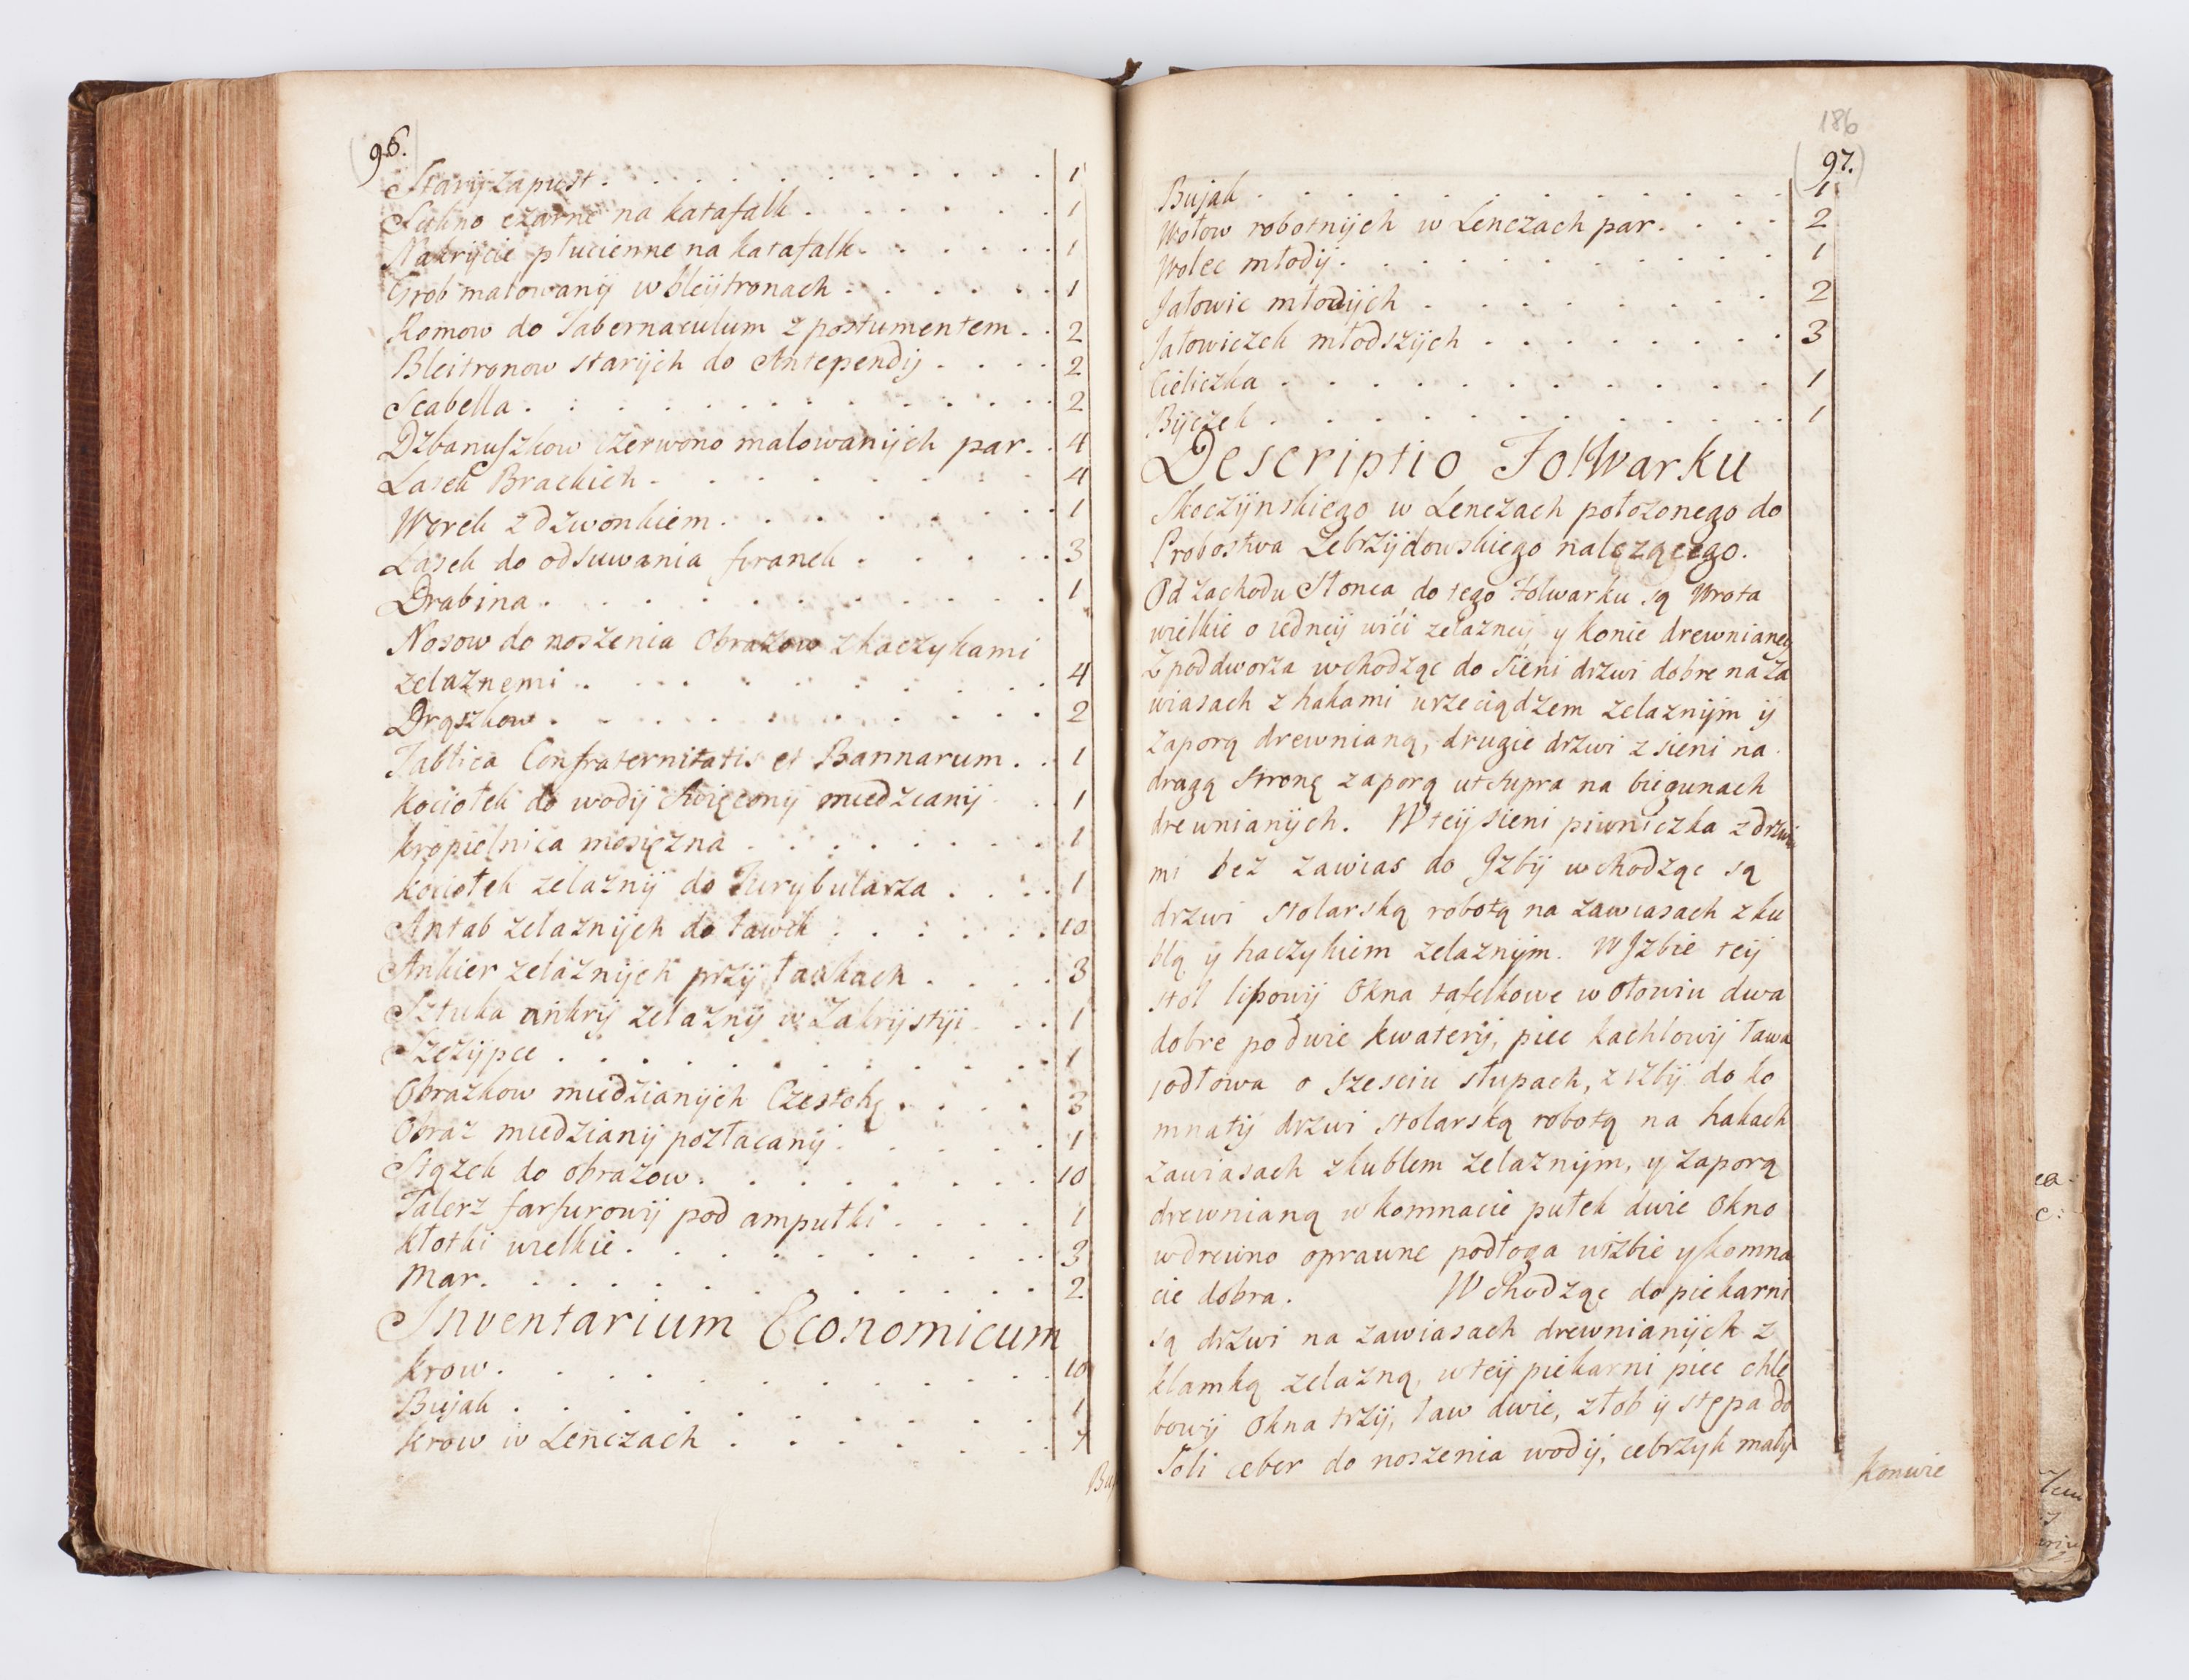 96.
Starÿ zapust . . . . . . . . . . 1
Sukno czarne na katafalk . . . . . . 1
Nakrÿcie płucienne na katafalk . . . . . 1
Grob malowanÿ w bleÿtronach . . . . . 1
Romow do Tabernaculum z postumentem . . 2
Bleitronow starÿch do Antependÿ . . . . 2
Scabella . . . . . . . . . . . . 2
Dzbanuszkow czerwono malowanÿch par . . 4
Lasek Brackich . . . . . . . . . 4
Worek z dzwonkiem . . . . . . . . 1
Lasek do odsuwania firanek . . . . . 3
Drabina . . . . . . . . . . . 1
Nosow do noszenia Obrazow z haczykami
zelaznemi . . . . . . . . . . 4
Drązkow . . . . . . . . . . . 2
Tablica Confraternitatis et Bannarum . . 1
Kociołek do wodÿ święconÿ miedzianÿ . . 1
Kropielnica mosięzna . . . . . . . . 1
Kociołek zelaznÿ do Turybularza . . . . 1
Antab zelaznÿch do ławek . . . . . . 10
Ankier zelaznÿch przÿ ławkach . . . . 3
Sztuka ankrÿ zelaznÿ w Zakrÿstÿi . . . 1
Szczÿpce . . . . . . . . . . . 1
Obrazkow miedzianÿch Czestohę . . . . 3
Obraz miedzianÿ pozłacanÿ . . . . . 1
Stązek do obrazow . . . . . . . . 10
Talerz farfurowÿ pod ampułki . . . . 1
Kłotki wielkie . . . . . . . . . 3
Mar . . . . . . . . . . . . 2
Inventarium Economicum
Krow . . . . . . . . . . . . 10
Bujak . . . . . . . . . . . . 1
Krow w Lenczach . . . . . . . 7
Buj
186
97.
Bujak . . . . . . . . . . . . 1
Wołow robotnÿch w Lenczach par . . . . 2
Wolec młodÿ . . . . . . . . . . 1
Jałowic młodÿch . . . . . . . . 2
Jałowiczek młodszÿch . . . . . . . 3
Cieliczka . . . . . . . . . . . 1
Bÿczek . . . . . . . . . . . . 1
Descriptio Folwarku
Skoczÿnskiego w Lenczach położonego do
Probostwa Zebrzÿdowskiego nalęzącego.
Od Zachodu Słonca do tego folwarku są Wrota
wielkie o iedneÿ wići zelazneÿ y konie drewnianeÿ
Z pod dworza wchodząc do Sieni drzwi dobre na za
wiasach z hakami wrzeciądzem zelaznÿm ÿ
zaporą drewnianą, drugie drzwi z sieni na
drugą stronę zaporą ut supra na biegunach
drewnianÿch. W teÿ sieni piwniczka z drzwi
mi bez zawias do Jzbÿ wchodząc są
drzwi stolarską robotą na zawiasach z ku
blą y haczykiem zelaznÿm. W Jzbie teÿ
stol lipowÿ Okna tafelkowe w ołowiu dwa
dobre po dwie kwaterÿ, piec kachlowÿ ława
jodłowa o szesciu słupach, z izbÿ do ko
mnatÿ drzwi stolarską robotą na hakach
zawiasach z kublem zelaznÿm, y zaporą
drewnianą w komnacie pułek dwie Okno
w drewno oprawne podłoga w izbie y komna
cie dobra. Wchodząc do piekarni
są drzwi na zawiasach drewnianÿch z
klamką zelazną, w teÿ piekarni piec chle
bowÿ Okna trzÿ, ław dwie, złob ÿ stępa do
Soli ceber do noszenia wodÿ, cebrzyk małÿ
Konwie